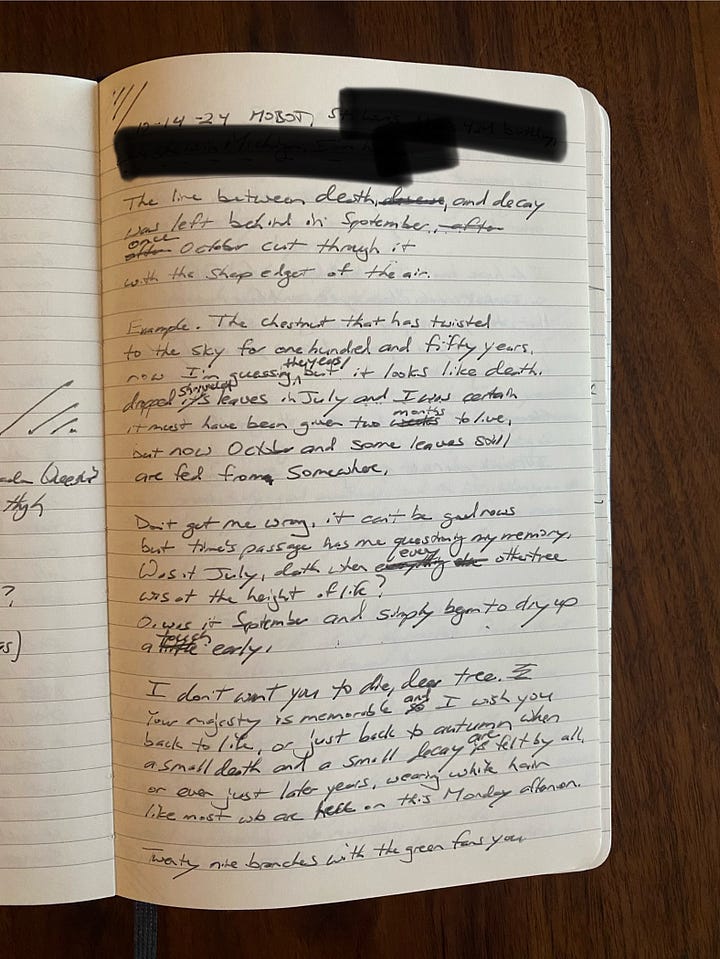 10-14-24 MOBOT,
The line between death, and decay
was left behind in September,
once October cut through it
with the shap edget of the air.
Example. The chestnut that has twisted
to the sky for one hundred and fifty years,
now I'm guessing the years, but it looks like death.
dropped its shriveled leaves in July and I was certain
it must have been given two months to live,
but now October and some leaves still
are fed from somewhere.
Don't get me wrong, it can't be good news
but time's passage has me questioning my memory.
Was it July, death when every other tree
was at the height of life?
Or was it September and simply began to dry up
a touch early.
I don't want you to die, dear tree.
Your majesty is memorable and I wish you
back to life, or just back to autumn when
a small death and a small decay are felt by all,
or even just later years, wearing white hair
like most who are here on this Monday afternoon.
Twenty nine branches with the green fans you